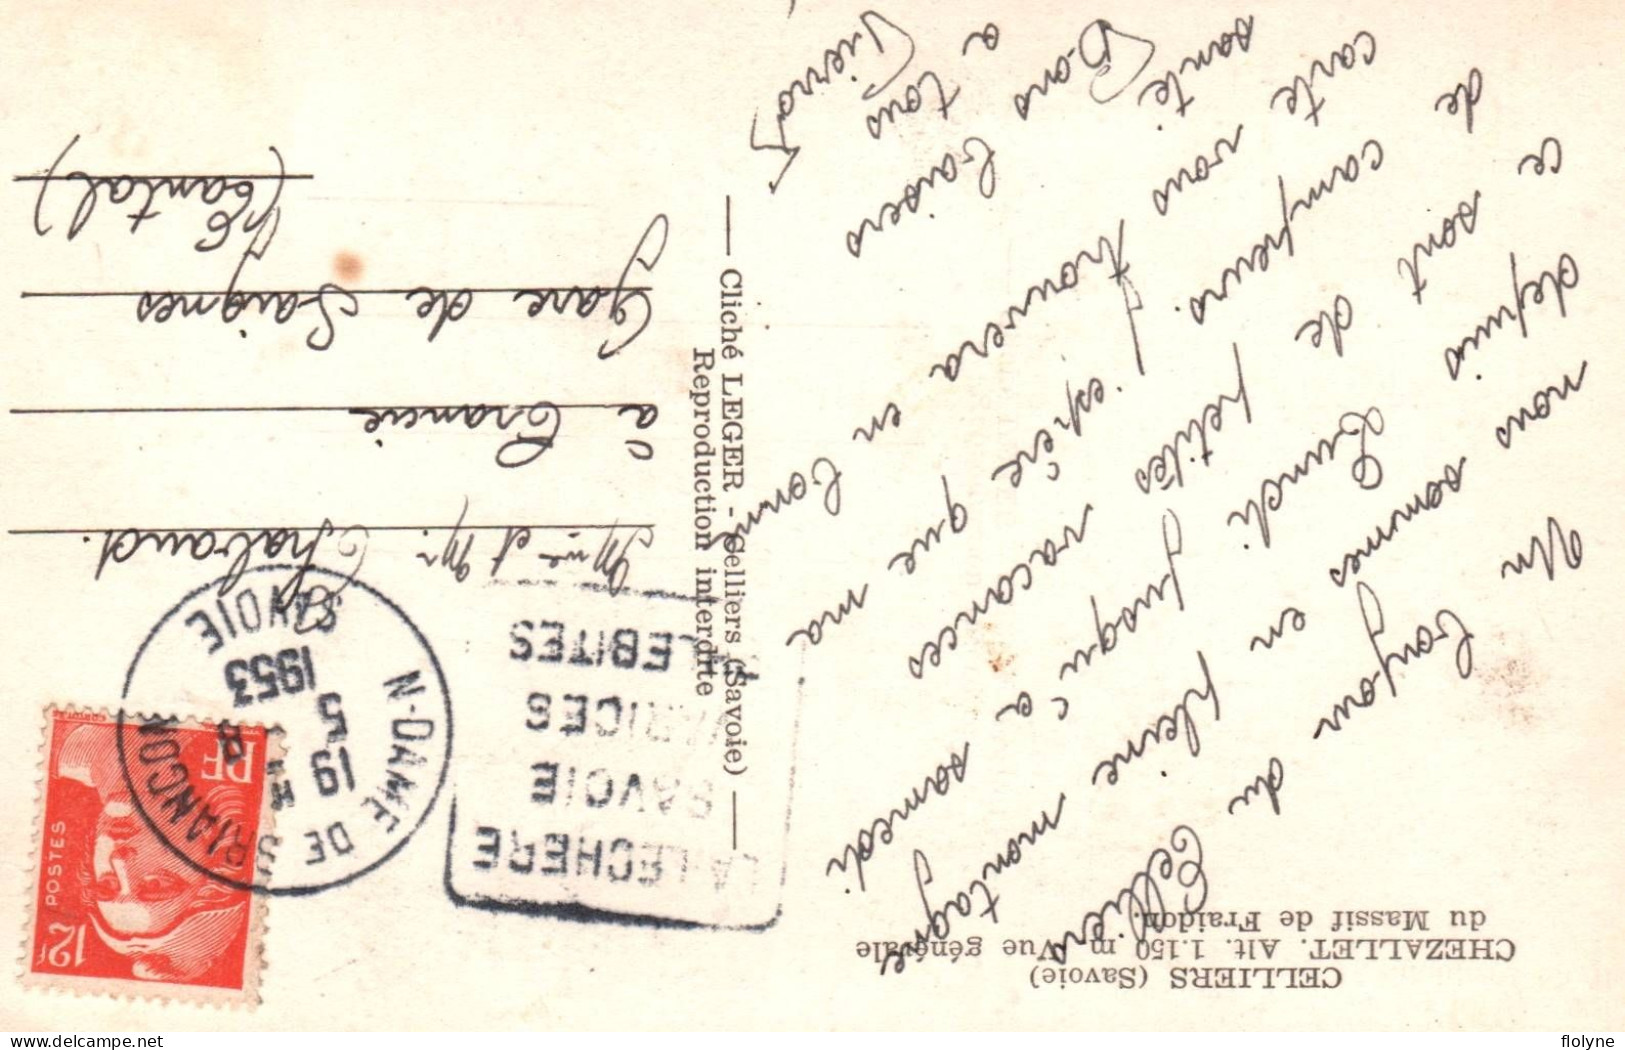 CELLIERS (Savoie)
CHEZALLET. Alt. 1.150 m Vue générale
du Massif de Fraidon.
Un bonjour du Celliers
nous sommes en pleine montagne
depuis Lundi jusqu'à samedi
ce sont de petites vacances
de campeurs. J'espère que ma
carte vous trouvera en bonne
santé
Bons baisers
a tous
Pierrot
Cliché LEGER - Celliers (Savoie)
Reproduction interdite
LA LECHERE
SAVOIE
VARICES
PHLEBITES
N-DAME DE BRIANCON
19
5
1953
SAVOIE
RF
POSTES
12F
Mme et Mr. Chabaud.
à
Gare de Saignes
(Cantal)
flolyne